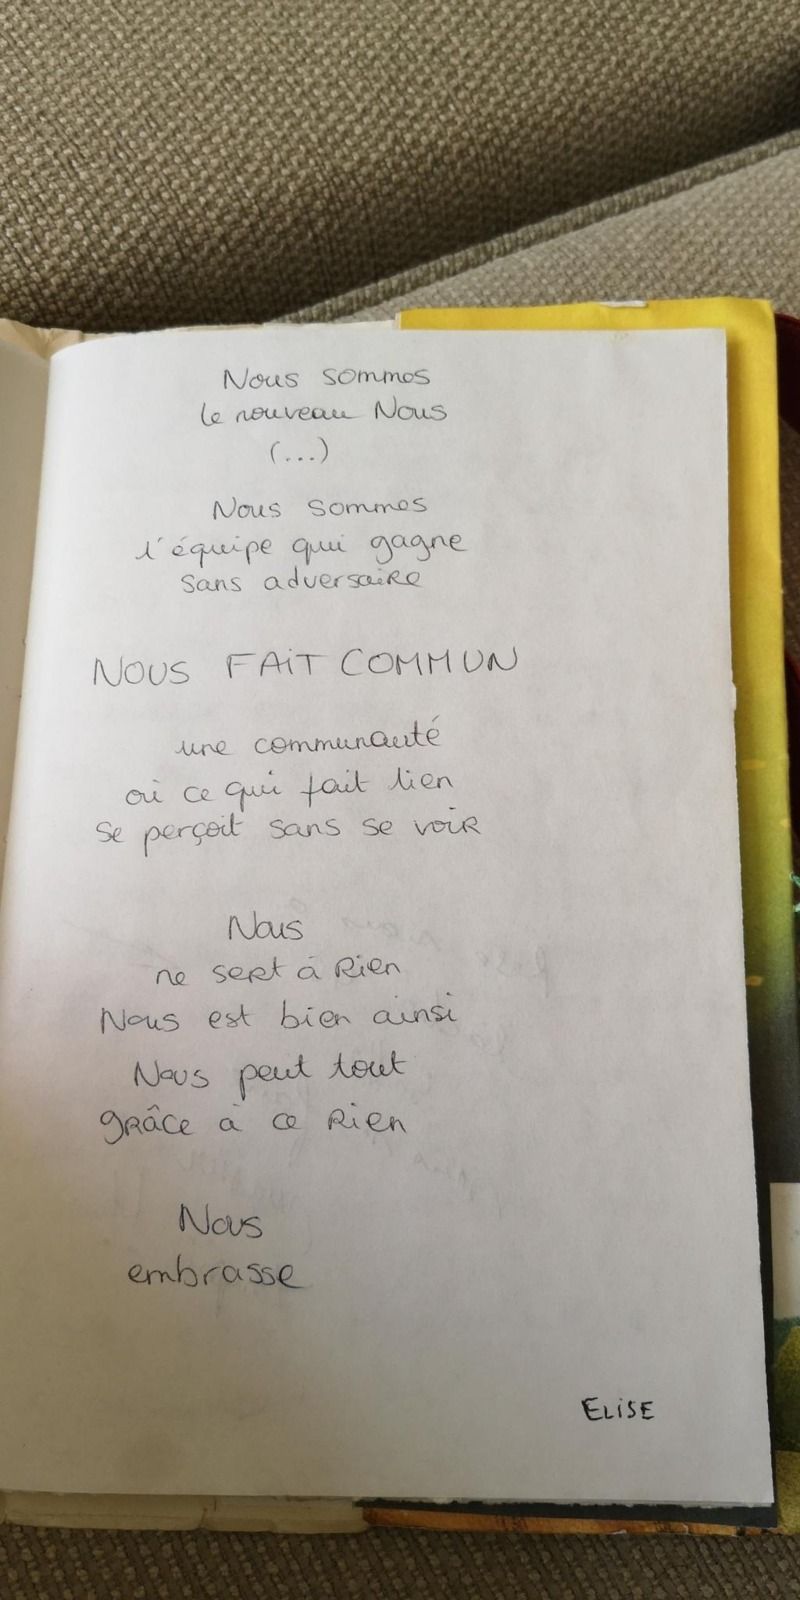 Nous sommes
le nouveau Nous
(...)
Nous sommes
l'équipe qui gagne
sans adversaire
NOUS FAIT COMMUN
une communauté
où ce qui fait lien
se perçoit sans se voir
Nous
ne sert à rien
Nous est bien ainsi
Nous peut tout
grâce à ce rien
Nous
embrasse
ELISE